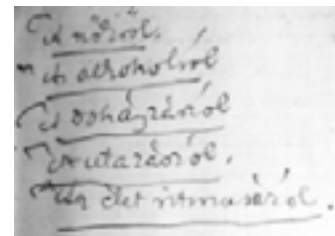 A nőiről.
Az alkoholról
A dohányzásról
Az utazásról.
Az élet ritmusáról.